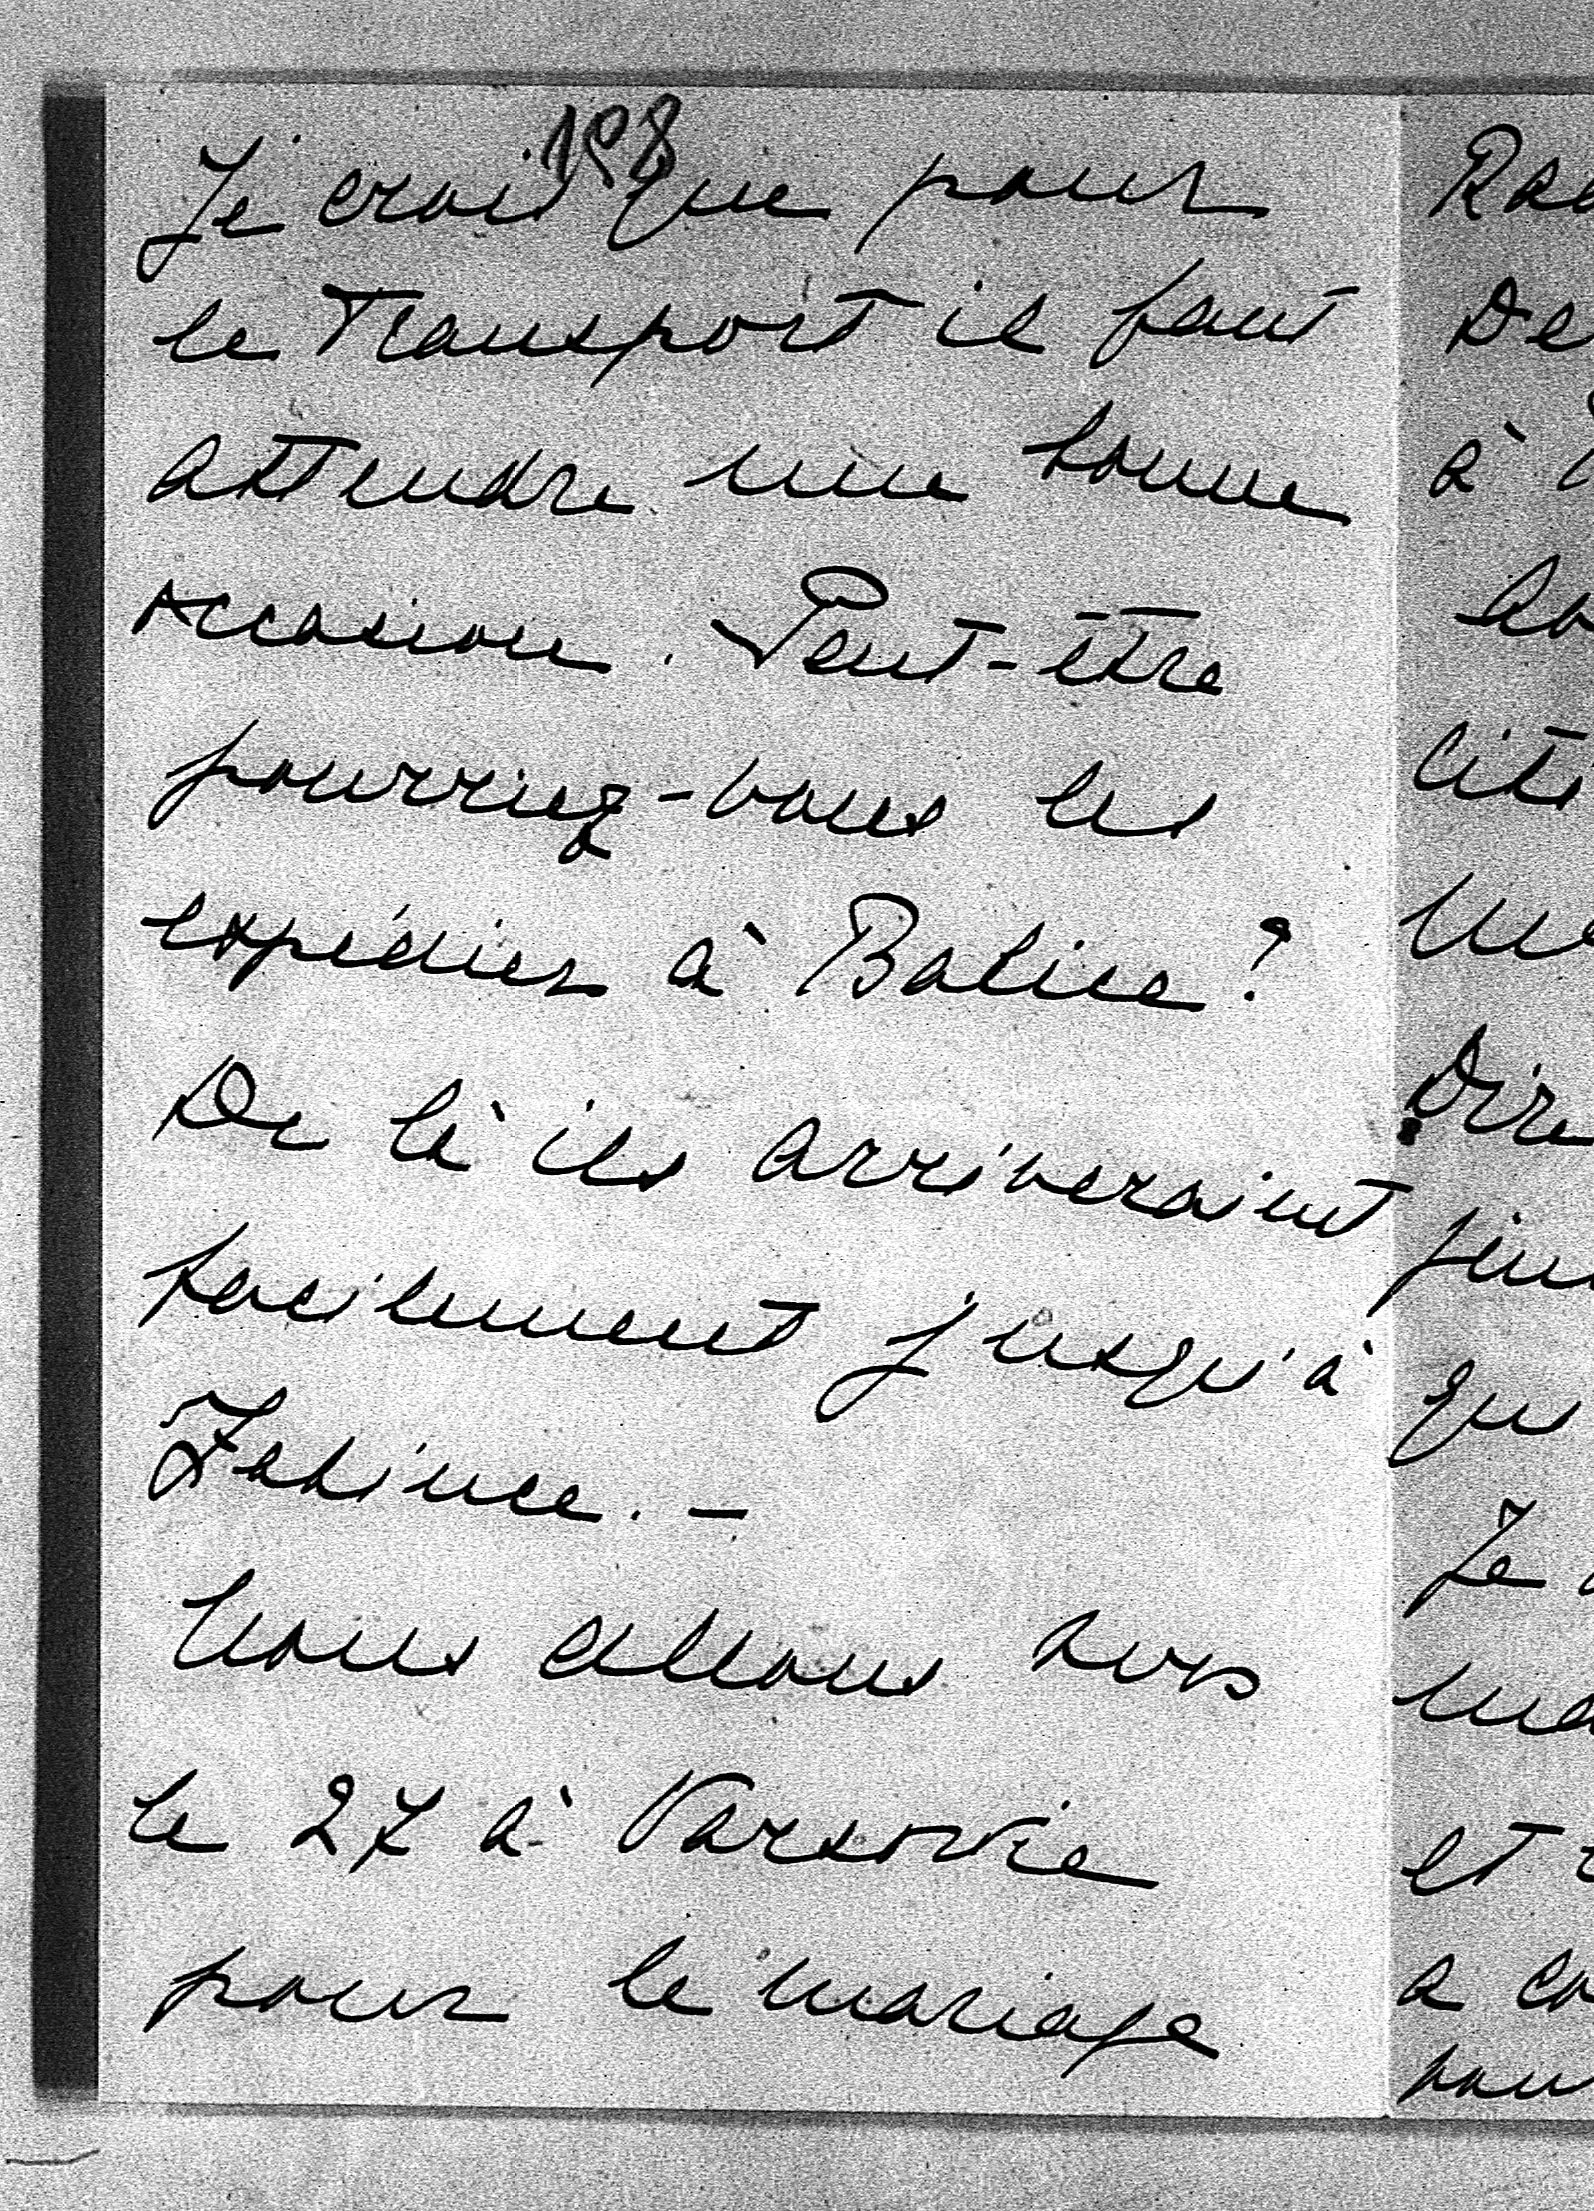 188
Je crois que pour
le transport il faut
attendre une bonne
occasion. Peut-être
pourriez-vous les
expédier à Balice?
De là ils arriveraient
facilement jusqu'à
Nous allons avec
le 27 à Varsovie
pour le mariage
De
à
Dire
qu
Je
et
a co
pou